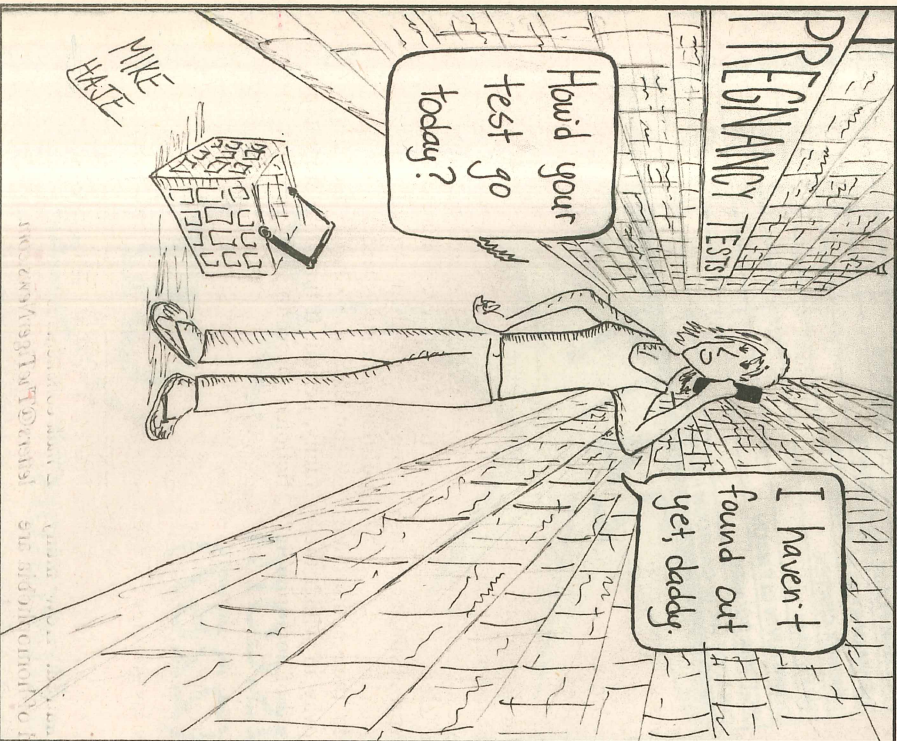 PREGNANCY TESTS
How'd your
test go
today?
I haven't
found out
yet, daddy.
MIKE
HAJE